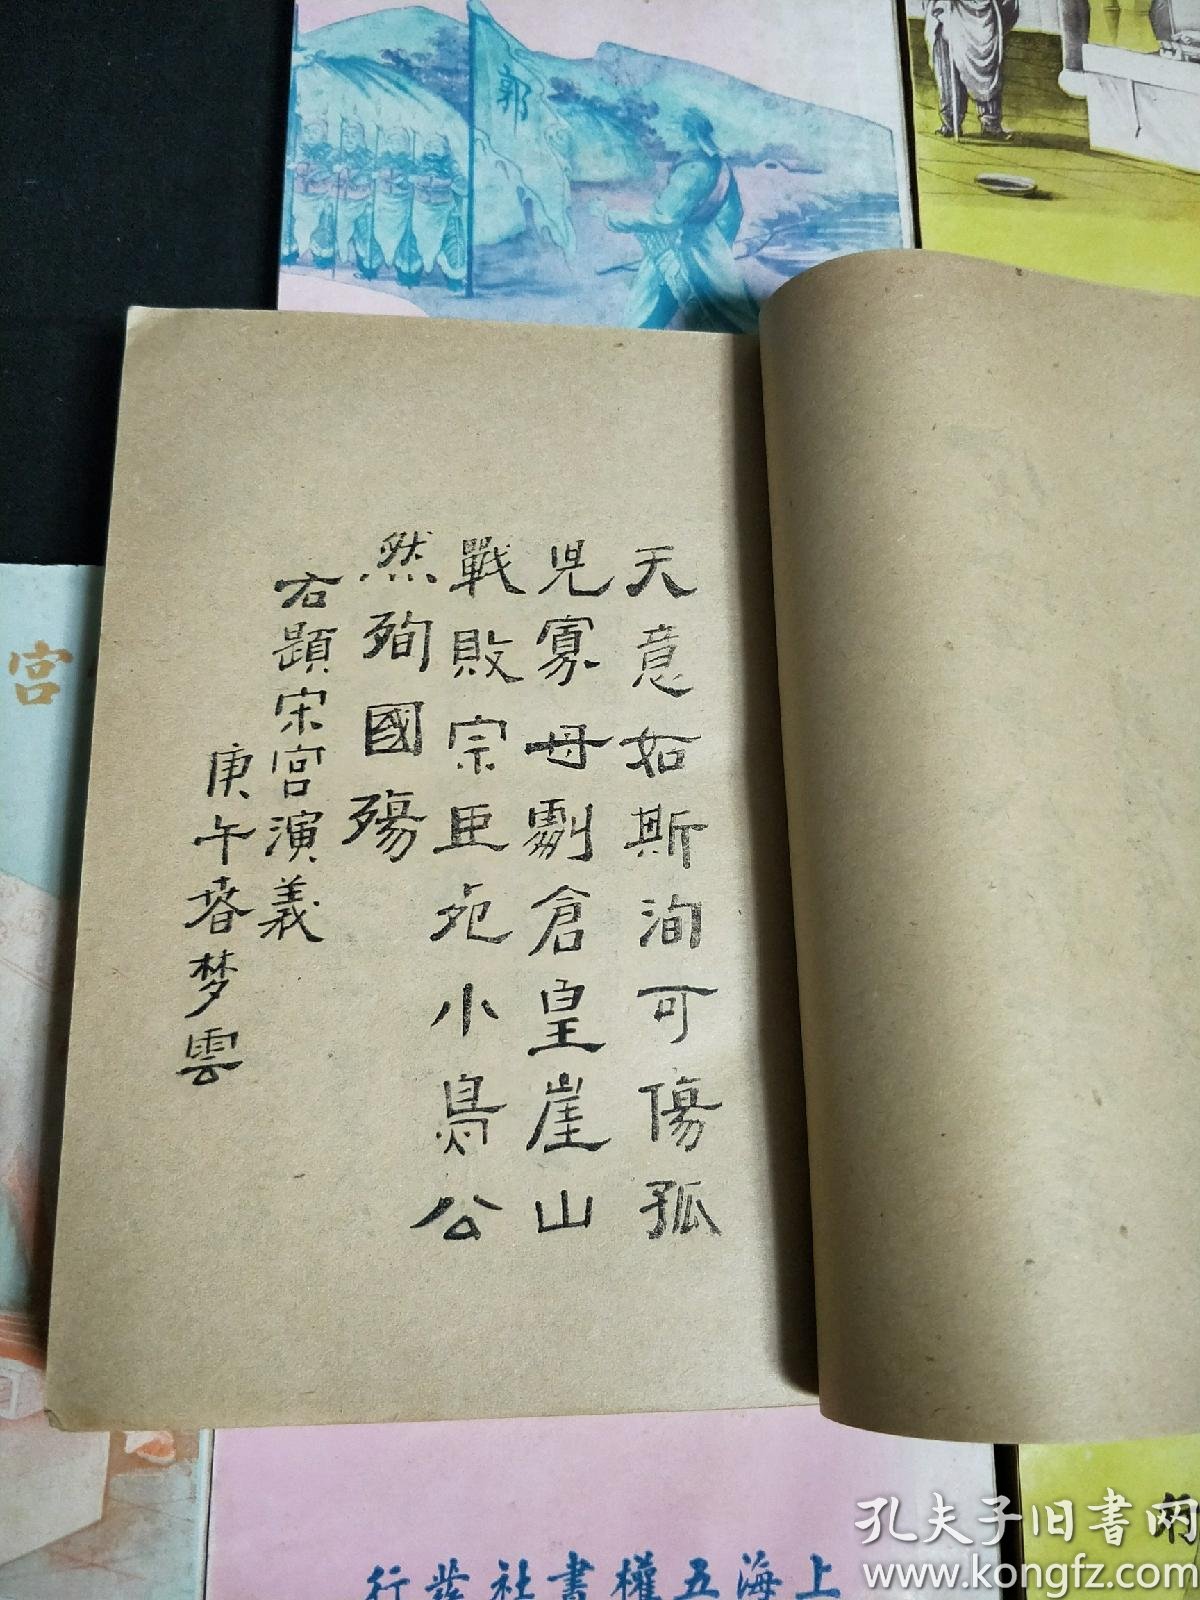 郭
宮
天意如斯洵可傷孤
兒寡母劇倉皇崖山
戰敗宗臣死小鳥公
然殉國殤
右題宋宮演義
庚午春夢雲
上海五權書社發行
孔夫子旧書网
www.kongfz.com